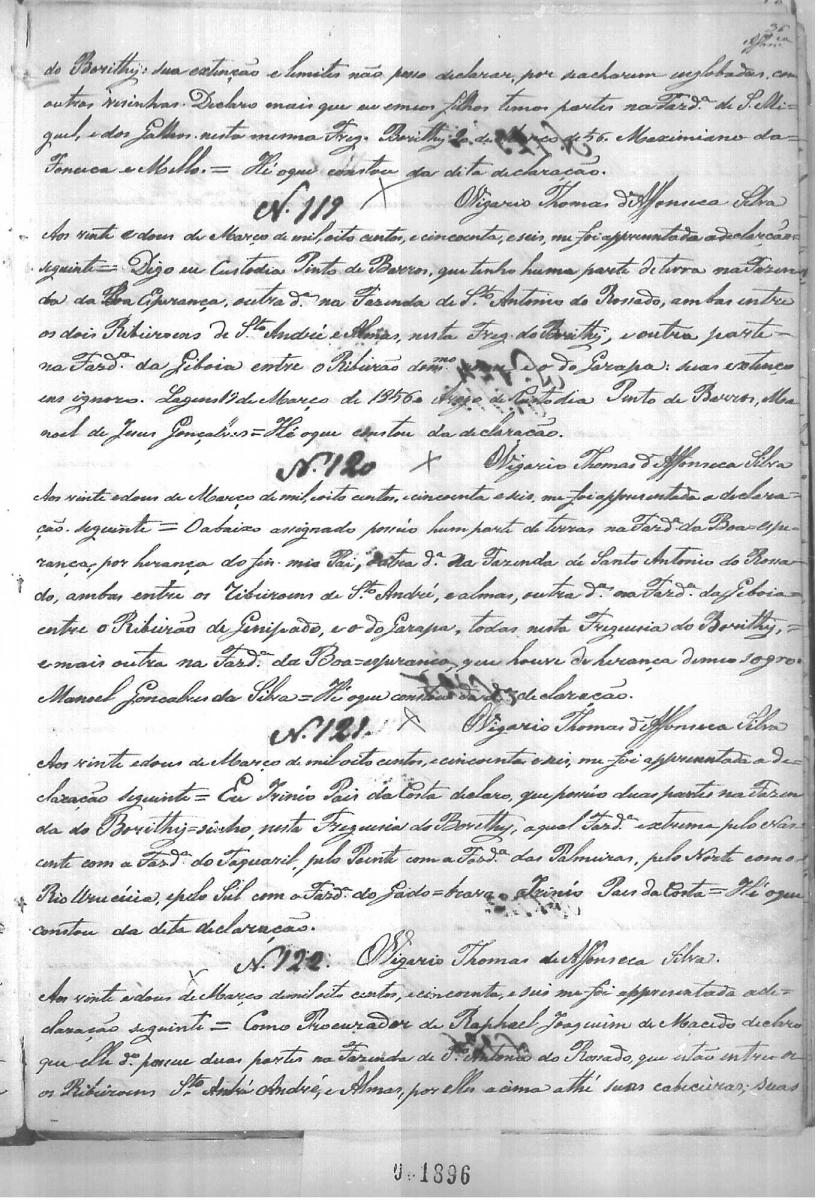 36
do Borithy: sua extenção e limites não posso declarar, por se acharem englobadas, com
outras visinhas. Declaro mais que eu e meus filhos temos partes na Fazd.ª de S. Mi-
guel, e dos Galhos nesta mesma Freg. Borithy 2 de Março de 56. Maximiano da
Fonseca e Mello. = Hé o que constou da dita declaração.
O Vigario Thomas d'Affonseca Silva
N. 119
Aos vinte e dous de Março de mil, oito centos, e cincoenta, e seis, me foi appresentada a declaração
seguinte = Digo eu Custodia Pinto de Barros, que tenho huma parte de terra na Fazen
da da Boa Esperança, outra d.ª na Fazenda de S.to Antonio do Rossado, ambas entre
os dois Ribeiroens de S.to André e Almas, nesta Freg. do Borithy, e outra parte
na Fazd.ª da Giboia entre o Ribeirão do m.mo nome e o do Garapa: suas extenço
ens ignoro. Lagens 12 de Março de 1856. Arogo de Custodia Pinto de Barros, Ma
noel de Jesus Gonçalves = Hé o que constou da declaração.
O Vigario Thomas d'Affonseca Silva
N. 120
Aos vinte e dous de Março de mil, oito centos, e cincoenta e seis, me foi appresentada a declara-
ção seguinte = O abaixo assignado possuo hum parte de terras na Fazd.ª da Boa-espe-
rança, por herança do meo Pai, outra d.ª na Fazenda de Santo Antonio do Rossa-
do, ambas entre os Ribeiroens de S.to André, e almas, outra d.ª na Fazd.ª da Giboia
entre o Ribeirão de Genipado, e o do Garapa, todas nesta Freguesia do Borithy, =
e mais outra na Fazd.ª da Boa=esperança, que houve de herança de meo sogro.
Manoel Gonçalves da Silva = Hé o que constou da declaração.
O Vigario Thomas d'Affonseca Silva
N. 121.
Aos vinte e dous de Março de mil oito centos, e cincoenta e seis, me foi appresentada a de-
claração seguinte = Eu Irinio Pais da Costa declaro, que possuo duas partes na Fazen
da do Borithy=sinho, nesta Freguesia do Borithy, a qual Fazd.ª extrema pelo Nas
cente com a Fazd.ª do Taquaril, pelo Poente com a Fazd.ª das Palmeiras, pelo Norte com o
Rio Urucúia, e pelo Sul com a Fazd.ª do Gado=bravo. Irinio Pais da Costa = Hé o que
constou da dita declaração.
O Vigario Thomas de Affonseca Silva.
N. 122.
Aos vinte e dous de Março de mil oito centos, e cincoenta, e seis me foi appresentada a de-
claração seguinte = Como Procurador de Raphael Joaquim de Macêdo declaro
que elle d.º possue duas partes na Fazenda de S.to Antonio do Rosado, que estão entre o
os Ribeiroens S.to André, e Almas, por elles acima athé suas cabeceiras; suas
0.1896